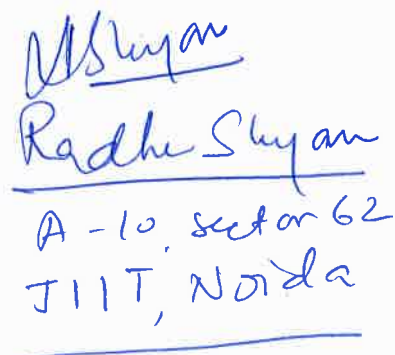 RShyam
Radhe Shyam
A-10, sector 62
JIIT, Noida